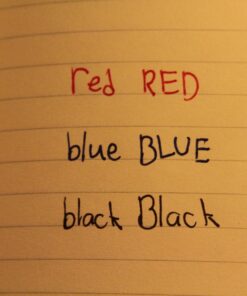 red RED
blue BLUE
black Black